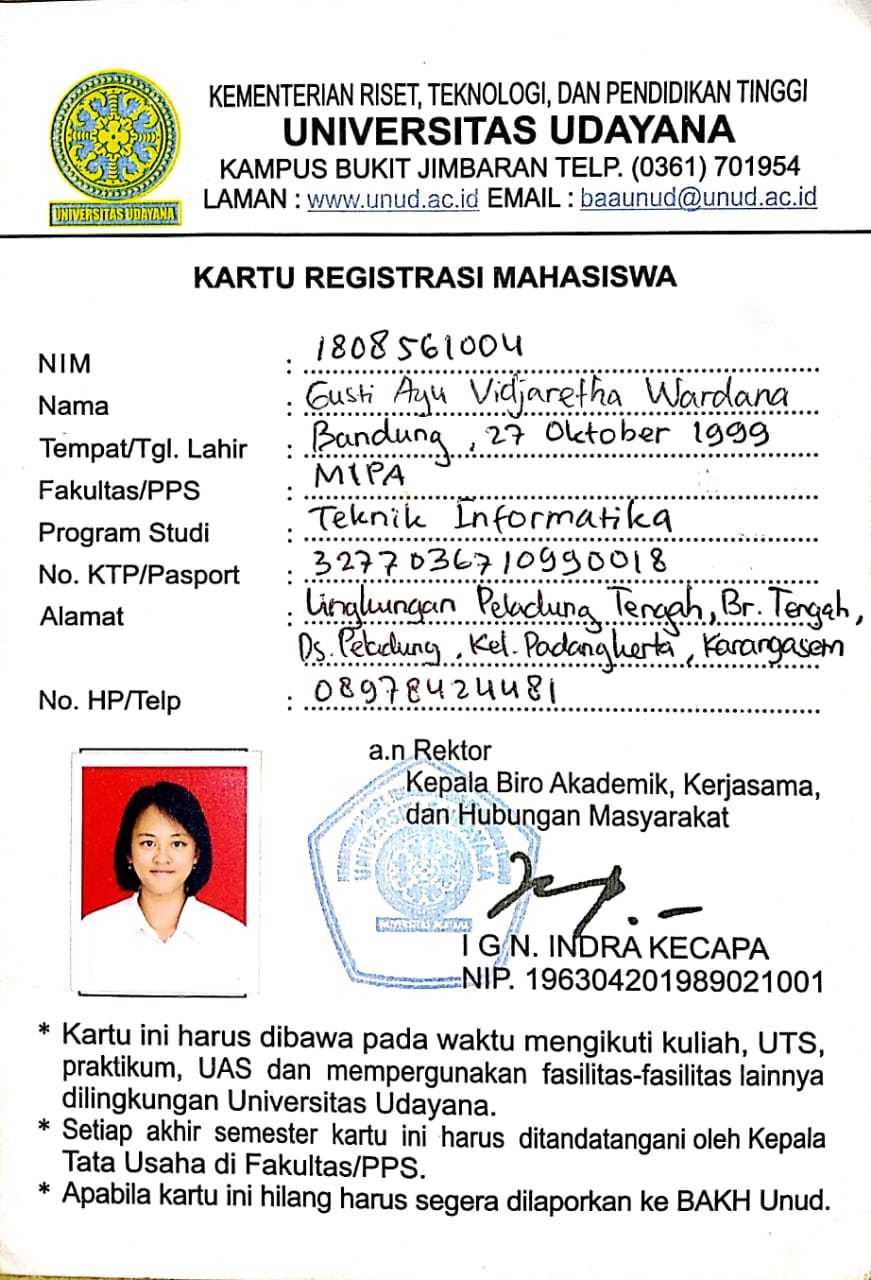 KEMENTERIAN RISET, TEKNOLOGI, DAN PENDIDIKAN TINGGI
UNIVERSITAS UDAYANA
KAMPUS BUKIT JIMBARAN TELP. (0361) 701954
LAMAN : www.unud.ac.id EMAIL : baaunud@unud.ac.id
UNIVERSITAS UDAYANA
KARTU REGISTRASI MAHASISWA
NIM : 1808561004
Nama : Gusti Ayu Vidjaretha Wardana
Tempat/Tgl. Lahir : Bandung, 27 Oktober 1999
Fakultas/PPS : MIPA
Program Studi : Teknik Informatika
No. KTP/Pasport : 3277036710990018
Alamat : Lingkungan Peladung Tengah, Br. Tengah,
Ds. Peladung, Kel. Padangkerta, Karangasem
No. HP/Telp : 08978424481
a.n Rektor
Kepala Biro Akademik, Kerjasama,
dan Hubungan Masyarakat
UNIVERSITAS UDAYANA
I G N. INDRA KECAPA
NIP. 196304201989021001
* Kartu ini harus dibawa pada waktu mengikuti kuliah, UTS,
praktikum, UAS dan mempergunakan fasilitas-fasilitas lainnya
dilingkungan Universitas Udayana.
* Setiap akhir semester kartu ini harus ditandatangani oleh Kepala
Tata Usaha di Fakultas/PPS.
* Apabila kartu ini hilang harus segera dilaporkan ke BAKH Unud.